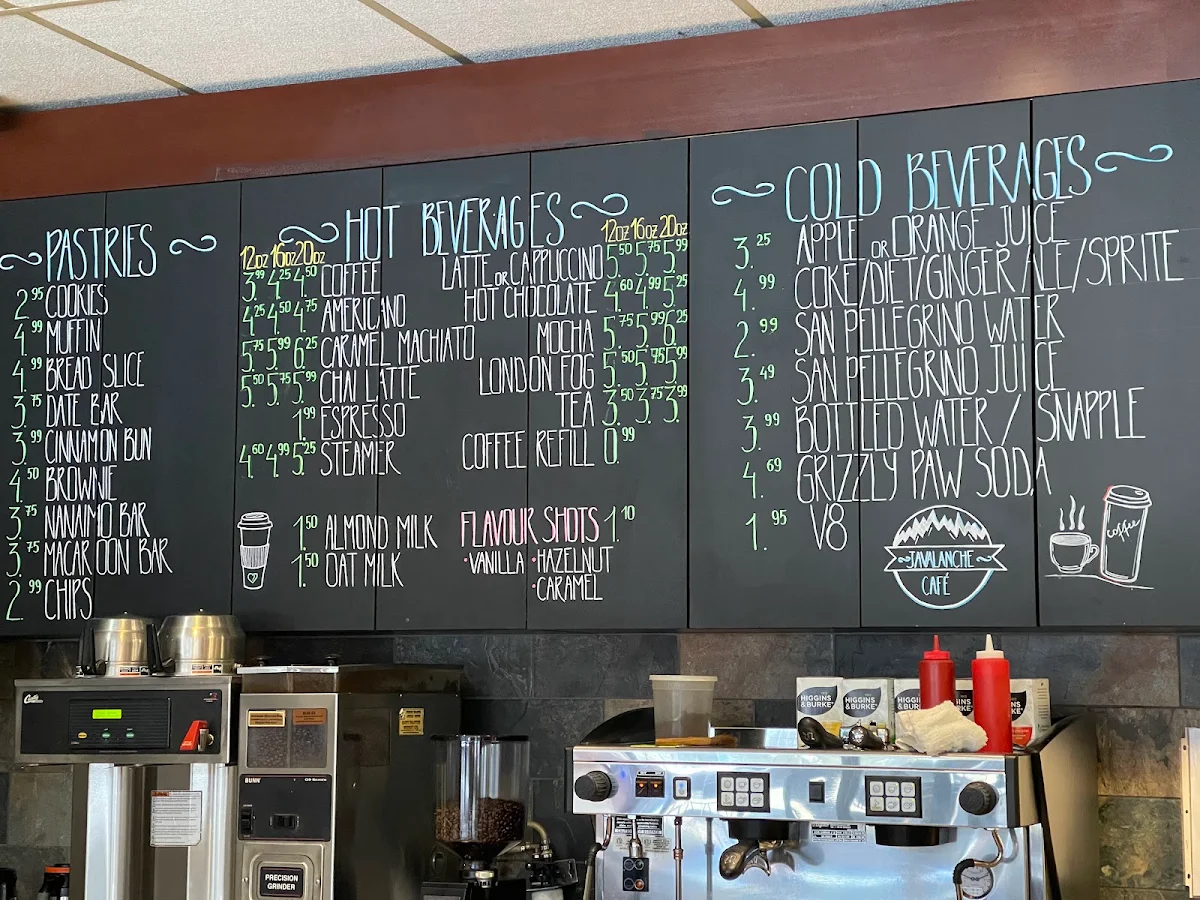 ~PASTRIES~
2.95 COOKIES
4.99 MUFFIN
4.99 BREAD SLICE
3.75 DATE BAR
3.99 CINNAMON BUN
4.50 BROWNIE
3.75 NANAIMO BAR
3.75 MACAROON BAR
2.99 CHIPS
~HOT BEVERAGES~
12oz 16oz 20oz
3.99 4.25 4.50 COFFEE
4.25 4.50 4.75 AMERICANO
5.75 5.99 6.25 CARAMEL MACHIATO
5.50 5.75 5.99 CHAI LATTE
1.99 ESPRESSO
4.60 4.99 5.25 STEAMER
1.50 ALMOND MILK
1.50 OAT MILK
12oz 16oz 20oz
LATTE or CAPPUCCINO 5.50 5.75 5.99
HOT CHOCOLATE 4.60 4.99 5.25
MOCHA 5.75 5.99 6.25
LONDON FOG 5.50 5.75 5.99
TEA 3.50 3.75 3.99
COFFEE REFILL 0.99
FLAVOUR SHOTS 1.10
•VANILLA •HAZELNUT
•CARAMEL
~COLD BEVERAGES~
3.25 APPLE or ORANGE JUICE
4.99 COKE/DIET/GINGER ALE/SPRITE
2.99 SAN PELLEGRINO WATER
3.49 SAN PELLEGRINO JUICE
3.99 BOTTLED WATER / SNAPPLE
4.69 GRIZZLY PAW SODA
1.95 V8
JAVALANCHE
CAFÉ
coffee
Curtis
BUNN
PRECISION
GRINDER
HIGGINS
&BURKE
HIGGINS
&BURKE